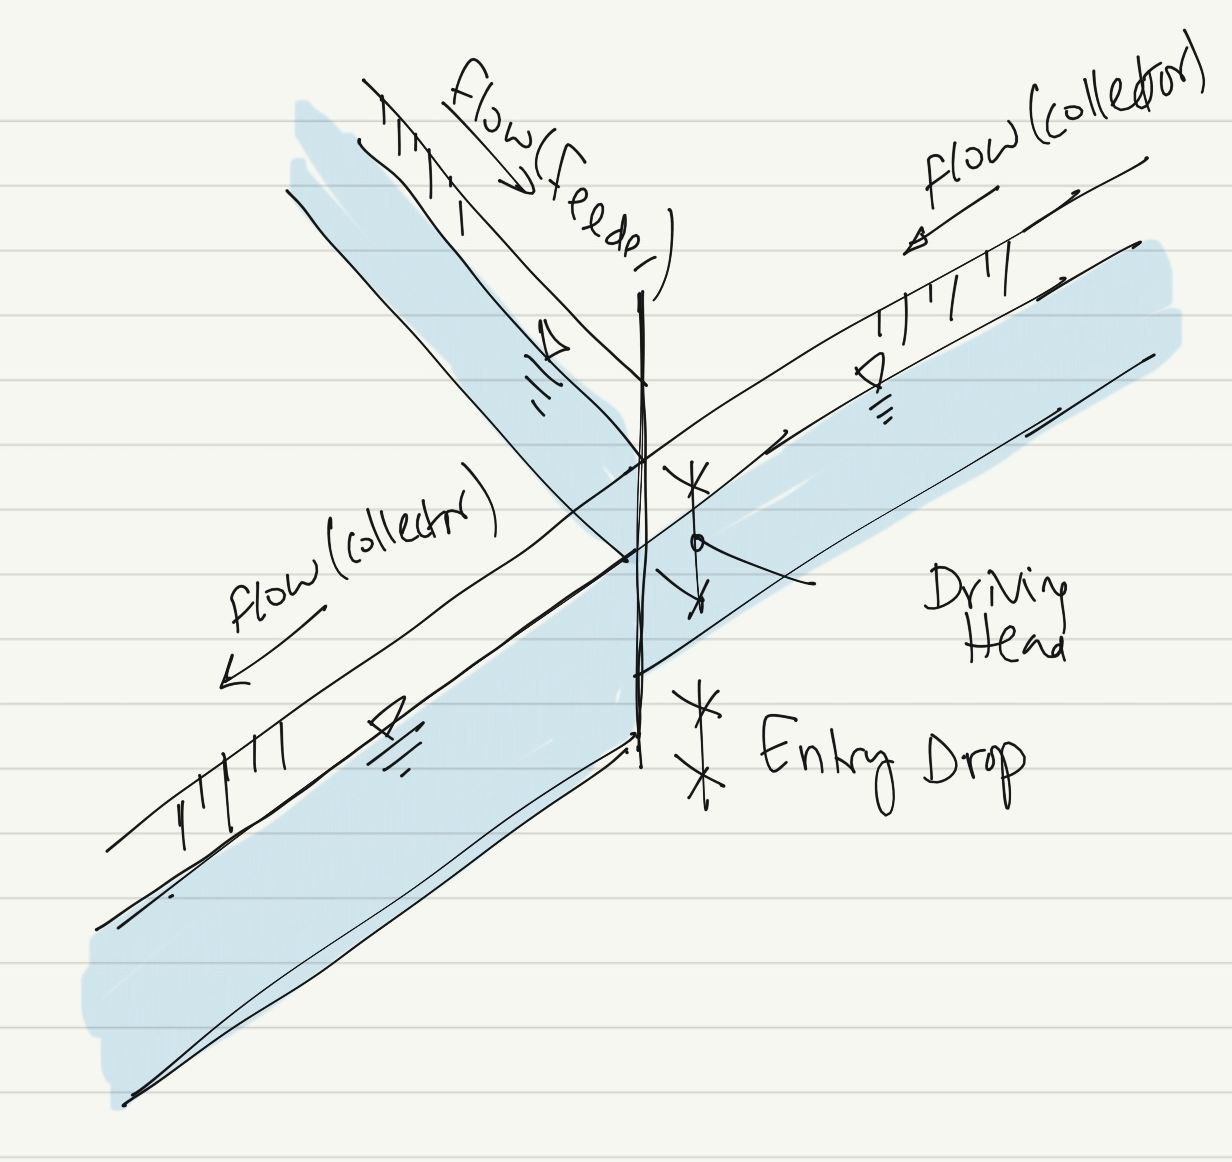 flow (feeder)
flow (collector)
flow (collector)
Driving
Head
Entry Drop